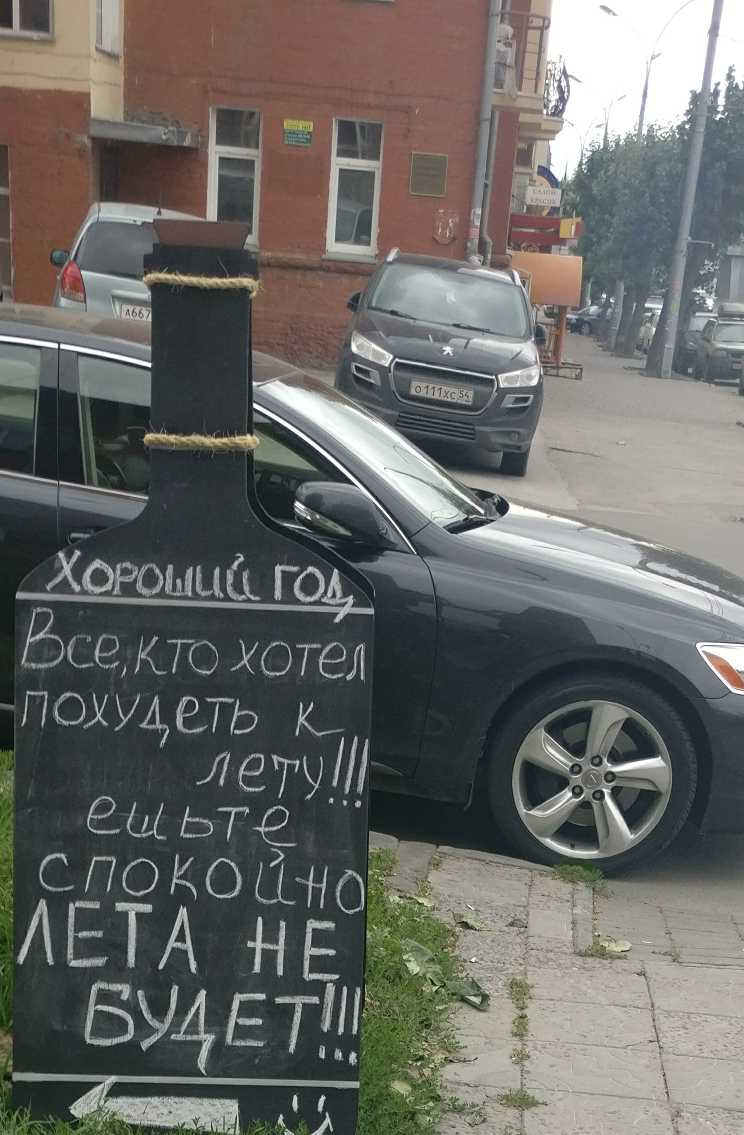 САЛОН
КРАСОК
А667
О111ХС 54
Хороший год
Все, кто хотел
похудеть к
лету!!!
ешьте
спокойно
ЛЕТА НЕ
БУДЕТ!!!